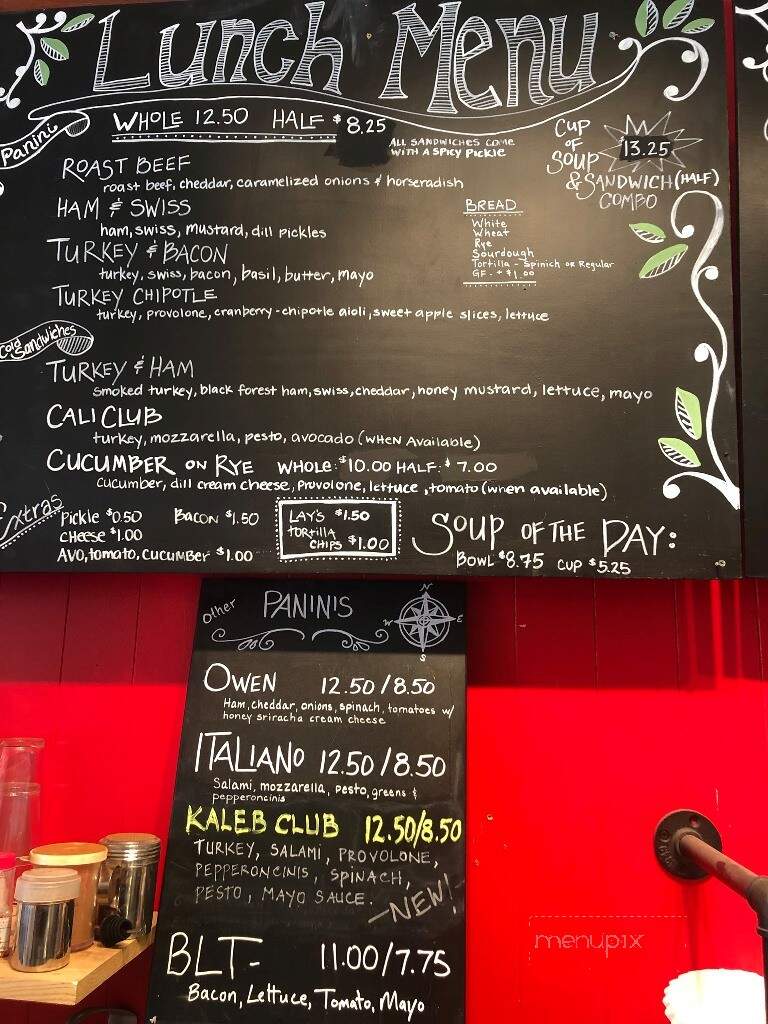 Lunch Menu
Panini
WHOLE 12.50 HALF $8.25
ALL SANDWICHES COME
WITH A SPICY PICKLE
CUP
OF
SOUP
& SANDWICH (HALF)
COMBO
13.25
ROAST BEEF
roast beef, cheddar, caramelized onions & horseradish
HAM & SWISS
ham, swiss, mustard, dill pickles
TURKEY & BACON
turkey, swiss, bacon, basil, butter, mayo
TURKEY CHIPOTLE
turkey, provolone, cranberry-chipotle aioli, sweet apple slices, lettuce
BREAD
White
Wheat
Rye
Sourdough
Tortilla - Spinich or Regular
GF - + $1.00
Cold Sandwiches
TURKEY & HAM
smoked turkey, black forest ham, swiss, cheddar, honey mustard, lettuce, mayo
CALI CLUB
turkey, mozzarella, pesto, avocado (WHEN Available)
CUCUMBER ON RYE WHOLE: $10.00 HALF: $7.00
cucumber, dill cream cheese, provolone, lettuce, tomato (when available)
Extras
Pickle $0.50 BACON $1.50
CHeese $1.00
AVO, tomato, CUCUMBER $1.00
LAY'S $1.50
TORTILLA
CHIPS $1.00
SOUP OF THE DAY:
BOWL $8.75 CUP $5.25
other PANINIS
N
W E
S
OWEN 12.50/8.50
Ham, cheddar, onions, spinach, tomatoes w/
honey sriracha cream cheese
ITALIANO 12.50/8.50
Salami, mozzarella, pesto, greens &
pepperoncinis
KALEB CLUB 12.50/8.50
TURKEY, SALAMI, PROVOLONE,
PEPPERONCINIS, SPINACH,
PESTO, MAYO SAUCE.
-NEW!-
BLT- 11.00/7.75
Bacon, Lettuce, Tomato, Mayo
menupix